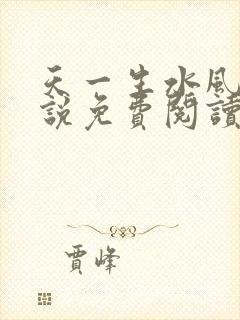 天一生水風
說免費閱讀
賈峰